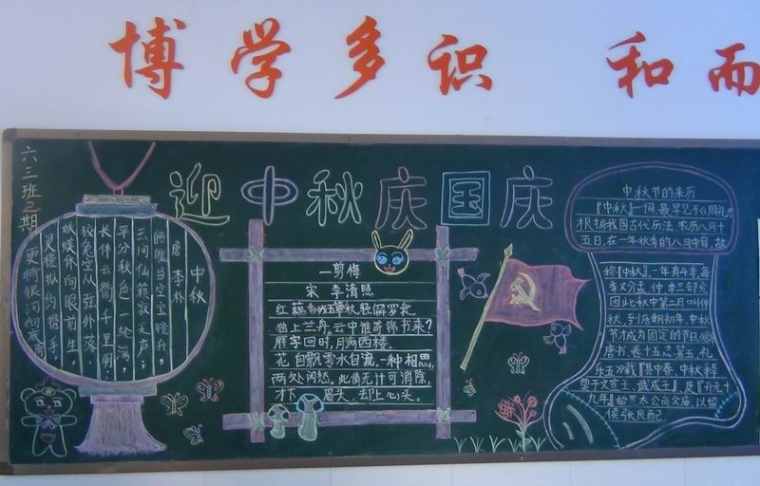 博学多识 和而
六三班二期
迎中秋庆国庆
中秋
唐 李朴
当空宝镜升,
间仙籁寂无声;
平分秋色一轮满,
长伴云衢千里明;
狡兔空从弦外落,
妖蟆休向眼前生;
灵槎拟约携手,
更待银河彻底清
一剪梅
宋 李清照
红藕香残玉簟秋,轻解罗裳
独上兰舟,云中谁寄锦书来?
雁字回时,月满西楼.
花自飘零水自流,一种相思,
两处闲愁,此情无计可消除,
才下眉头,却上心头.
中秋节的来历
『中秋』一词,最早见于《周礼》
根据我国古代历法,农历八月十
五日,在一年秋季的八月中旬,故
称『中秋』一年有四季,每
季又分孟、仲、季三部分
因此秋中第二月叫仲
秋,到唐朝初年,中秋
节才成为固定的节日
唐书 卷十五 志第五 礼
乐五》载『其中春、中秋释
奠于文宣王、武成王』及『开元十
九年』始置太公尚父庙,以留
侯张良配